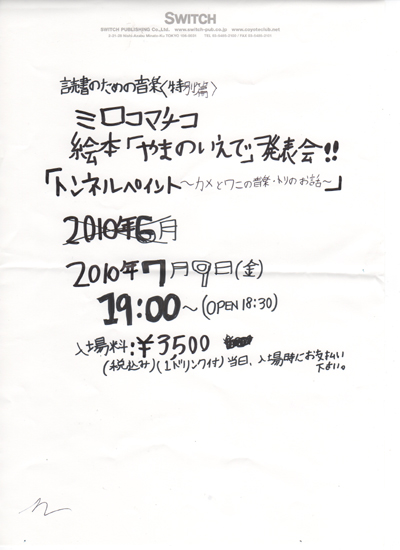 SWITCH
SWITCH PUBLISHING Co.,Ltd. www.switch-pub.co.jp www.coyoteclub.net
読書のための音楽〈特別篇〉
ミロコマチコ
絵本「やまのいえで」発表会!!
「トンネルペイント〜カメとワニの音楽・トリのお話〜」
2010年6月
2010年7月9日(金)
19:00〜(OPEN 18:30)
入場料:¥3,500
(税込み)(1ドリンク付)当日、入場時にお支払い
下さい。